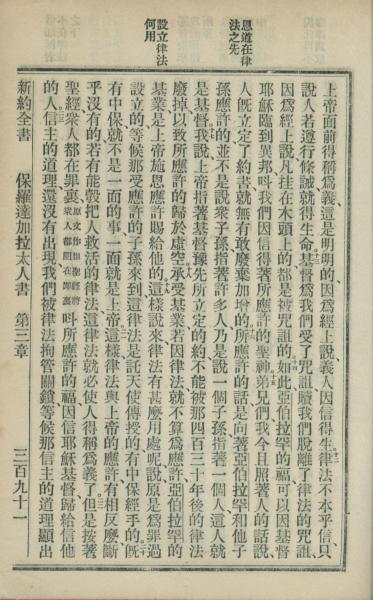 恩道在律
法之先
設立律法
何用
上帝面前得稱爲義這是明明的因爲經上說義人因信得生律法不本乎信只
說人若遵行條誡就得生命基督爲我們受了咒詛贖我們脫離了律法的咒詛
因爲經上說凡挂在木頭上的都是被咒詛的如此亞伯拉罕的福可以因基督
耶穌臨到異邦呌我們因信得著所應許的聖神弟兄們我今且照著人的話說
人旣立定了約書就無有敢廢棄加增的所應許的話是向著亞伯拉罕和他子
孫應許的並不是說衆子孫指著許多人乃是說一個子孫指著一個人這人就
是基督我說上帝指著基督豫先所立定的約不能被那四百三十年後的律法
廢掉以致所應許的歸於虛空承受基業若因律法就不算爲應許亞伯拉罕的
基業是上帝施恩應許賜給他的這樣說來律法有甚麼用處呢說原是爲罪過
設立的等候那受應許的子孫來到這律法是託天使傳授的有中保經手的旣
有中保就不是一面的事一面就是上帝這樣律法與上帝的應許有相反麼斷
乎沒有的若有能彀把人救活的律法這律法就必使人得稱爲義了但是按著
聖經衆人都在罪裏原文作如聖經將衆人都圈在罪裏呌所應許的福因信耶穌基督歸給信他
的人信主的道理還沒有出現我們被律法拘管關鎖等候那信主的道理顯出
新約全書 保羅達加拉太人書 第三章 三百九十一